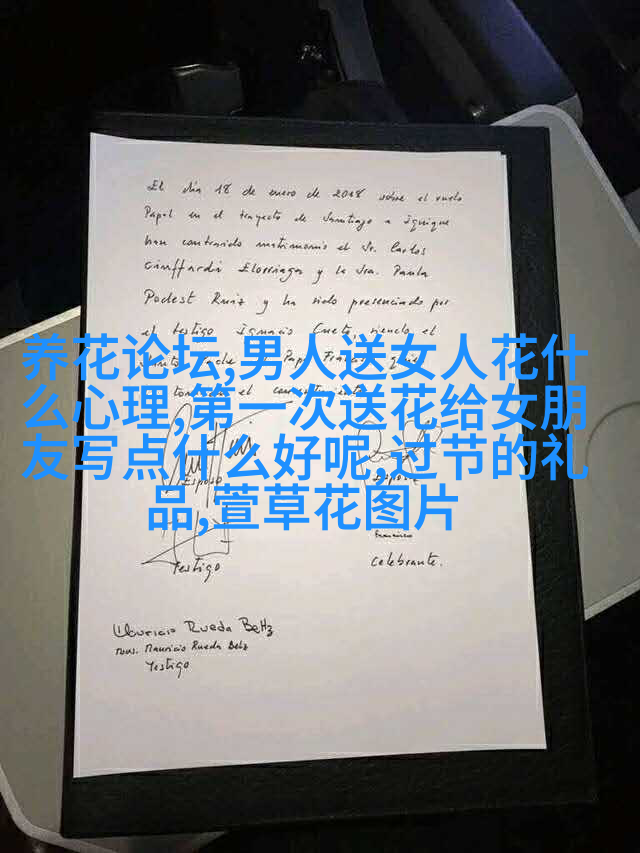 El día 18 de enero de 2018 sobre el vuelo
Papal en el trayecto de Santiago a Iquique
han contraido matrimonio el Sr. Carlos
Ciuffardi Elorriaga y la Sra. Paula
Podest Ruiz y ha sido presenciado por
el testigo Ignacio Cueto, siendo el
养花论坛,男人送女人花什
么心理,第一次送花给女朋
友写点什么好呢,过节的礼
品,萱草花图片
Esposo
Esposa
Franciscus
Testigo
Celebrante.
Mauricio Rueda Beltz
Mons. Mauricio Rueda Beltz
Testigo